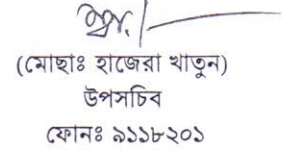 (মোছাঃ হাজেরা খাতুন)
উপসচিব
ফোনঃ ৯১১৮২০১